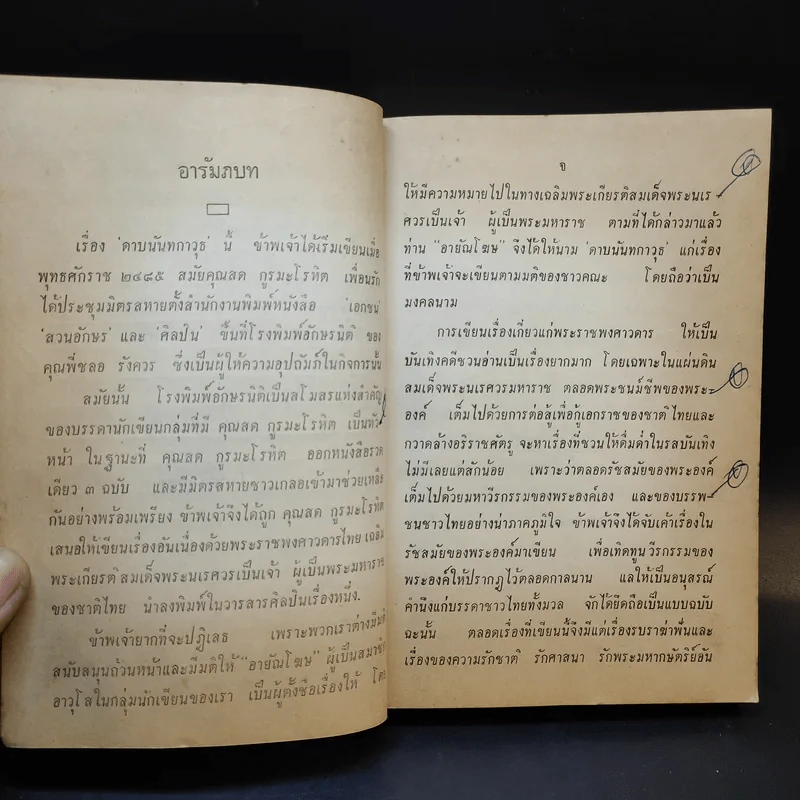 อารัมภบท
เรื่อง 'ดาบนันทกาวุธ' นี้ ข้าพเจ้าได้เริ่มเขียนเมื่อ
พุทธศักราช ๒๔๘๕ สมัยคุณสด กูรมะโรหิต เพื่อนรัก
ได้ประชุมมิตรสหายตั้งสำนักงานพิมพ์หนังสือ 'เอกชน'
'สวนอักษร' และ 'ศิลปิน' ขึ้นที่โรงพิมพ์อักษรนิติ ของ
คุณพี่ชลอ รังควร ซึ่งเป็นผู้ให้ความอุปถัมภ์ในกิจการนั้น
สมัยนั้น โรงพิมพ์อักษรนิติเป็นสโมสรแห่งสำคัญ
ของบรรดานักเขียนกลุ่มที่มี คุณสด กูรมะโรหิต เป็นหัว
หน้า ในฐานะที่ คุณสด กูรมะโรหิต ออกหนังสือรวด
เดียว ๓ ฉบับ และมีมิตรสหายชาวเกลอเข้ามาช่วยเหลือ
กันอย่างพร้อมเพรียง ข้าพเจ้าจึงได้ถูก คุณสด กูรมะโรหิต
เสนอให้เขียนเรื่องอันเนื่องด้วยพระราชพงศาวดารไทย เฉลิม
พระเกียรติสมเด็จพระนเรศวรเป็นเจ้า ผู้เป็นพระมหาราช
ของชาติไทย นำลงพิมพ์ในวารสารศิลปินเรื่องหนึ่ง.
ข้าพเจ้ายากที่จะปฏิเสธ เพราะพวกเราต่างมีมติ
สนับสนุนถ้วนหน้าและมีมติให้ "อายัณโฆษ" ผู้เป็นสมาชิก
อาวุโสในกลุ่มนักเขียนของเรา เป็นผู้ตั้งชื่อเรื่องให้ โดย
จ
ให้มีความหมายไปในทางเฉลิมพระเกียรติสมเด็จพระนเร
ศวรเป็นเจ้า ผู้เป็นพระมหาราช ตามที่ได้กล่าวมาแล้ว
ท่าน "อายัณโฆษ" จึงได้ให้นาม 'ดาบนันทกาวุธ' แก่เรื่อง
ที่ข้าพเจ้าจะเขียนตามมติของชาวคณะ โดยถือว่าเป็น
มงคลนาม
การเขียนเรื่องเกี่ยวแก่พระราชพงศาวดาร ให้เป็น
บันเทิงคดีชวนอ่านเป็นเรื่องยากมาก โดยเฉพาะในแผ่นดิน
สมเด็จพระนเรศวรมหาราช ตลอดพระชนม์ชีพของพระ-
องค์ เต็มไปด้วยการต่อสู้เพื่อกู้เอกราชของชาติไทยและ
กวาดล้างอริราชศัตรู จะหาเรื่องที่ชวนให้ดื่มด่ำในรสบันเทิง
ไม่มีเลยแต่สักน้อย เพราะว่าตลอดรัชสมัยของพระองค์
เต็มไปด้วยมหาวีรกรรมของพระองค์เอง และของบรรพ-
ชนชาวไทยอย่างน่าภาคภูมิใจ ข้าพเจ้าจึงได้จับเค้าเรื่องใน
รัชสมัยของพระองค์มาเขียน เพื่อเทิดทูนวีรกรรมของ
พระองค์ให้ปรากฏไว้ตลอดกาลนาน แลให้เป็นอนุสรณ์
คำนึงแก่บรรดาชาวไทยทั้งมวล จักได้ยึดถือเป็นแบบฉบับ
ฉะนั้น ตลอดเรื่องที่เขียนนี้จึงมีแต่เรื่องรบราฆ่าฟันและ
เรื่องของความรักชาติ รักศาสนา รักพระมหากษัตริย์อัน